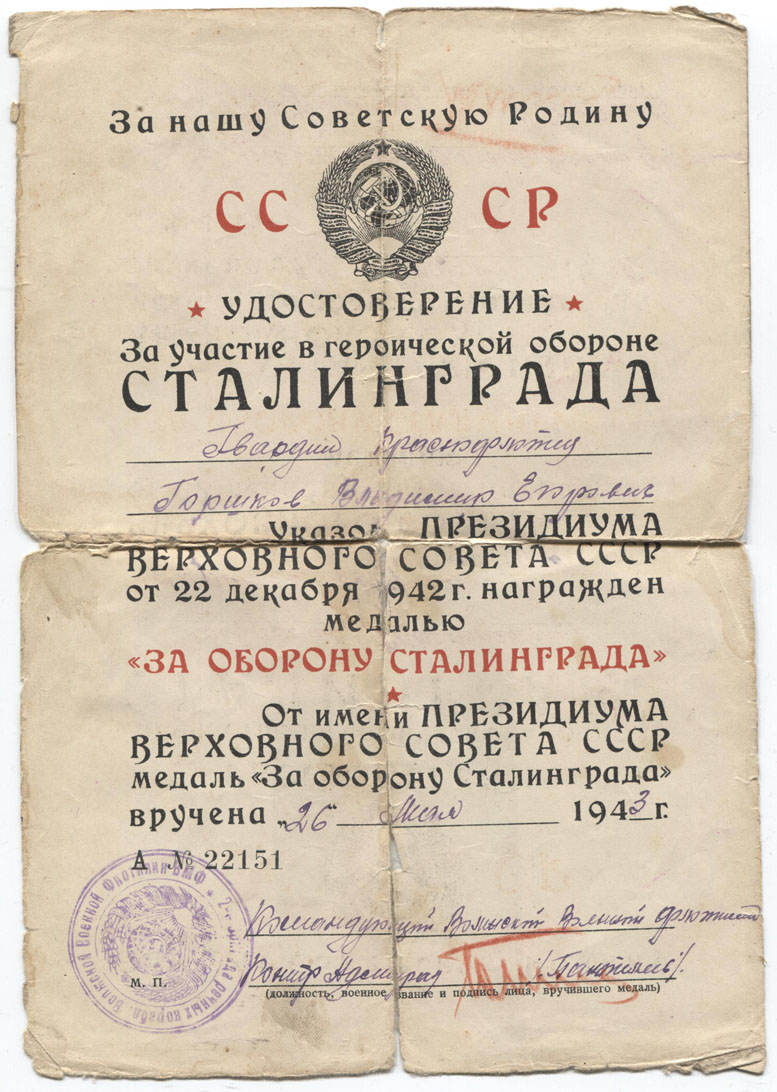 За нашу Советскую Родину
СССР
УДОСТОВЕРЕНИЕ
За участие в героической обороне
СТАЛИНГРАДА
Гвардии Краснофлотец
Горшков Владимир Егорович
Указом ПРЕЗИДИУМА
ВЕРХОВНОГО СОВЕТА СССР
от 22 декабря 1942 г. награжден
медалью
«ЗА ОБОРОНУ СТАЛИНГРАДА»
От имени ПРЕЗИДИУМА
ВЕРХОВНОГО СОВЕТА СССР
медаль «За оборону Сталинграда»
вручена „26" Мая 1943 г.
А № 22151
Командующий Волжской Военной Флотилией
Контр Адмирал /Пантелеев/.
М. П.
(должность, военное звание и подпись лица, вручившего медаль)
Волжской Военной Флотилии ВМФ
речных кораб.